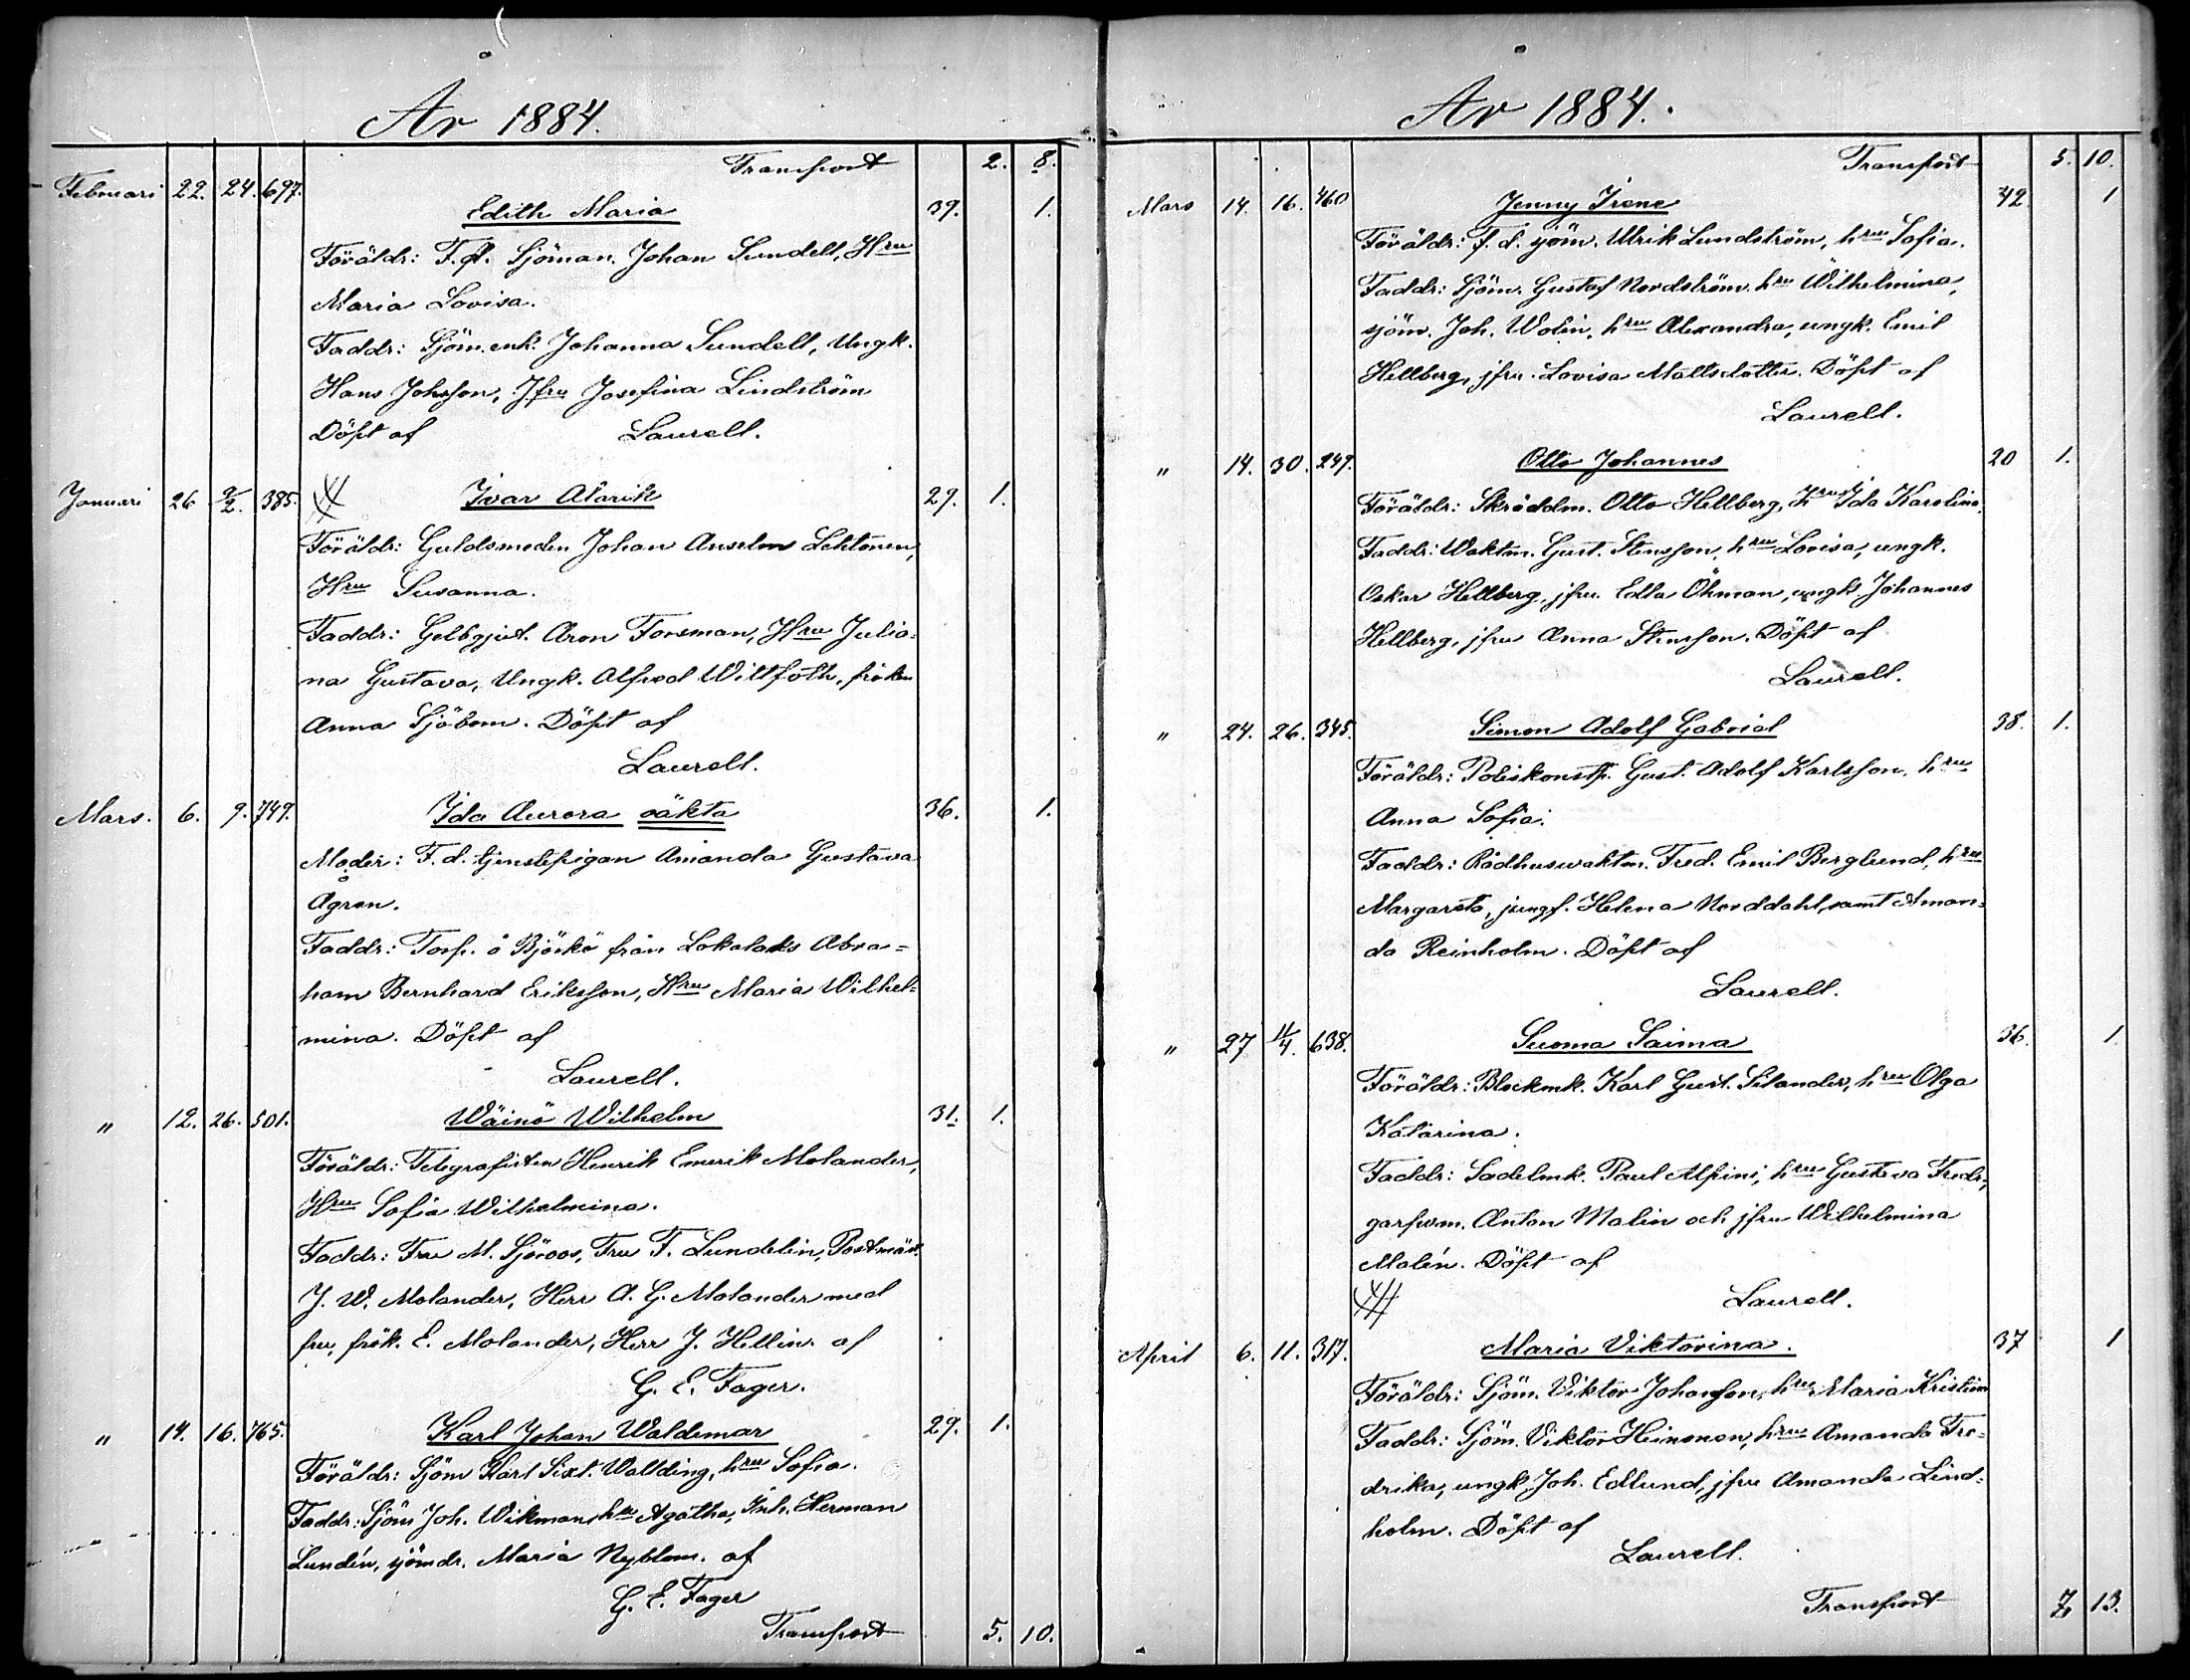 År 1884.
Transport 2. 8.
Februari 22. 24. 697. Edith Maria 39. 1.
Föräldr: F. d. Sjöman. Johan Sundell, Hru
Maria Lovisa.
Faddr: Sjöm.enk. Johanna Sundell, Ungk.
Hans Johsson, Jfru Josefina Lindström
Döpt af Laurell.
Januari 26 9/2. 385. Ivar Alarik 29. 1.
Föräldr: Guldsmeden Johan Anselm Lehtonen,
Hru Susanna.
Faddr: Gelbgjut. Aron Forsman, Hru Julia-
na Gustava, Ungk. Alfred Wiltfoth, fröken
Anna Sjöbom. Döpt af
Laurell.
Mars. 6. 9. 749. Ida Aurora oäkta 36. 1.
Moder: F. d. tjenstepigan Amanda Gustava
Ågren.
Faddr: Torp. å Björkö från Lokalaks Abra=
ham Bernhard Eriksson, Hru Maria Wilhel=
mina. Döpt af
Laurell.
" 12. 26. 501. Wäinö Wilhelm 31. 1.
Föräldr: Telegrafisten Henrik Emerik Molander,
Hru Sofia Wilhelmina.
Faddr: Fru M. Sjöroos, Fru F. Lundelin, Postmäst.
J. W. Molander, Herr A. G. Molander med
fru, frök. E. Molander, Herr J. Hellin. af
G. E. Fager.
" 14. 16. 765. Karl Johan Waldemar 29. 1.
Föräldr: Sjöm Karl Sixt. Wallding, hru Sofia.
Faddr: Sjöm Joh. Wikman, hru Agatha, Inh. Herman
Lundén, sjömdr. Maria Nyblom. af
G. E. Fager
Transport 5. 10.
År 1884.
Transport 5. 10.
Mars 14. 16. 460 Jenny Irene 42 1
Föräldr: F. d. sjöm. Ulrik Lundström, hru Sofia.
Faddr: Sjöm. Gustaf Nordström. hru Wilhelmina,
sjöm. Joh. Wolin, hru Alexandra, ungk. Emil
Hellberg, jfru. Lovisa Mattsdotter. Döpt af
Laurell.
" 14. 30. 249. Otto Johannes 20 1.
Föräldr: Skräddm. Otto Hellberg, Hru Ida Karolina,
Faddr: Waktm. Gust. Stensson, hru Lovisa, ungk.
Oskar Hellberg, jfru. Edla Öhman, ungk. Johannes
Hellberg, jfru Anna Stensson. Döpt af
Laurell.
" 24. 26. 345. Simon Adolf Gabriel 38. 1.
Föräldr: Poliskonstp. Gust. Adolf Karlsson, hru
Anna Sofia.
Faddr: Rådhuswaktm. Fred. Emil Berglund, hru
Margareta, jungf. Helena Norddahl, samt Aman-
da Reinholm. Döpt af
Laurell.
" 27 11/4. 638. Suoma Saima 36. 1.
Föräldr: Blockmk. Karl Gust. Silander, hru Olga
Katarina.
Faddr: Sadelmk. Paul Alpini, hru Gustava Fredr.,
garfwom. Anton Malin och jfru Wilhelmina
Malén. Döpt af
Laurell.
April 6. 11. 317. Maria Viktorina. 37 1
Föräldr: Sjöm. Viktor Johansson, hru Maria Kristina
Faddr: Sjöm. Viktor Heinonen, hru Amanda Fre-
drika, ungk. Joh. Edlund, jfru Amanda Lind-
holm. Döpt af
Laurell.
Transport 7. 13.